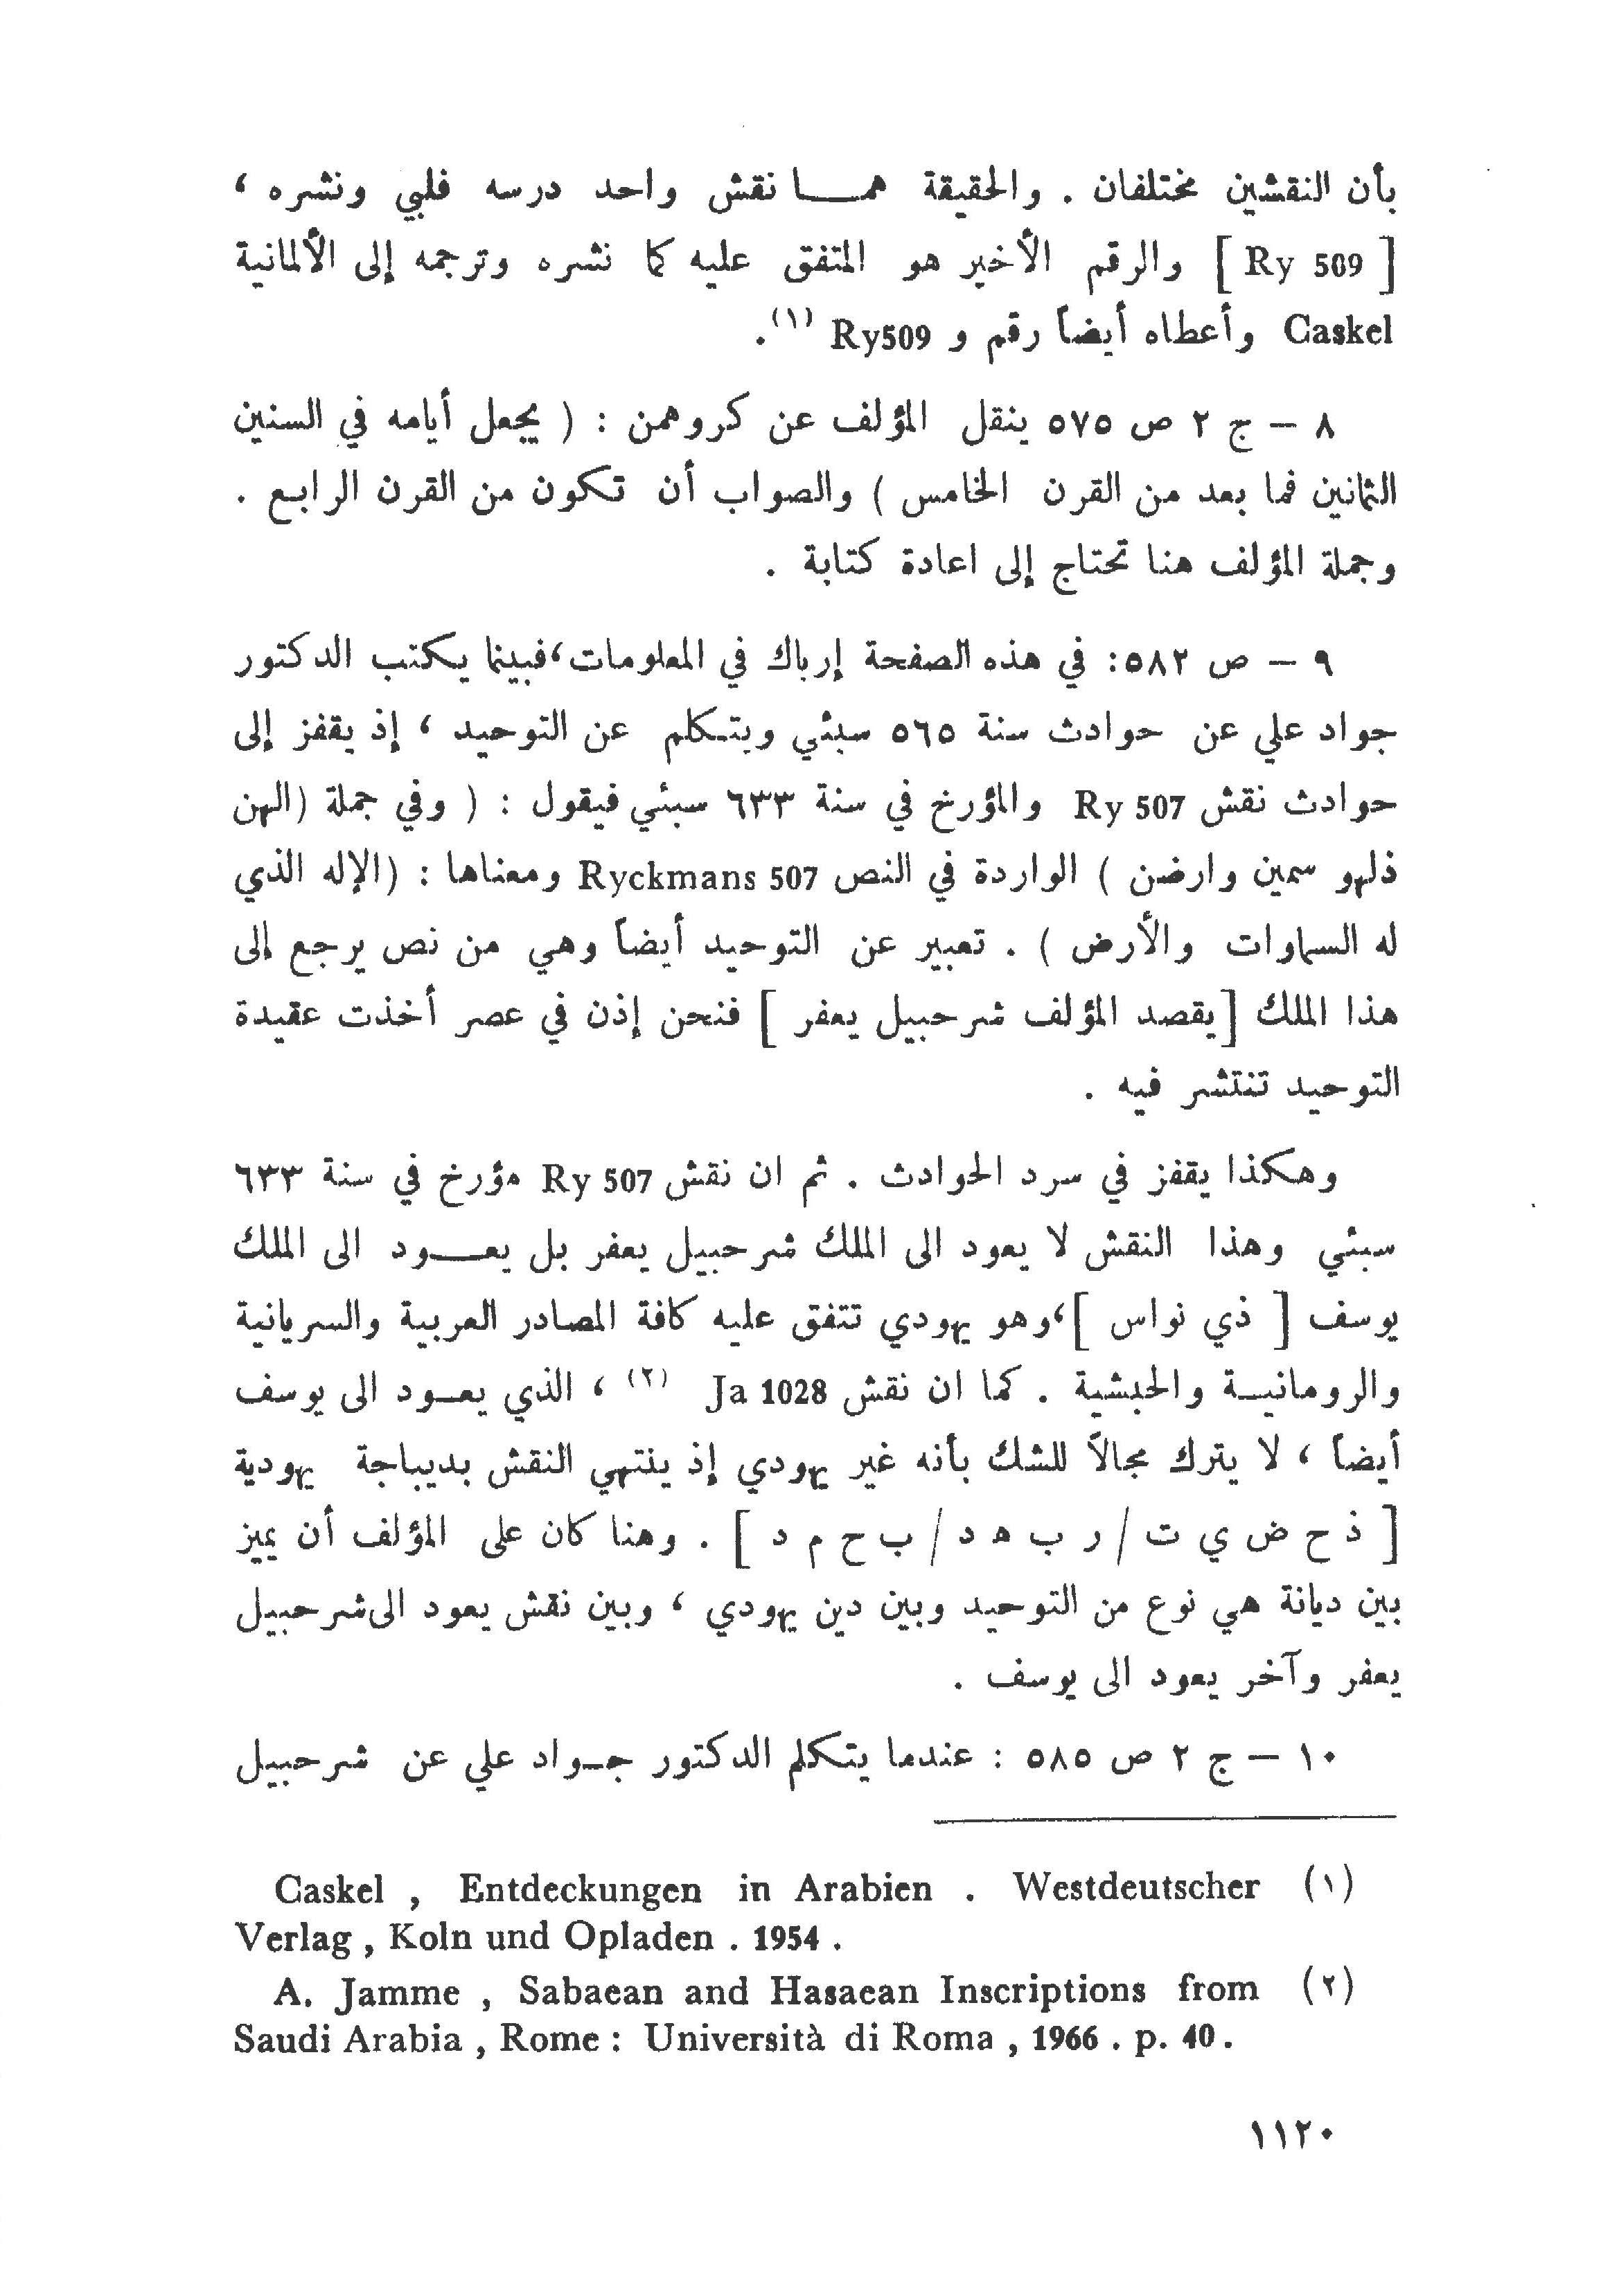 بأن النقشين مختلفان . والحقيقة همــا نقش واحد درسه فلبي ونشره ،
[ Ry 509 ] والرقم الأخير هو المتفق عليه كما نشره وترجمه إلى الألمانية
Caskel وأعطاه أيضاً رقم و Ry509 (١).
٨ – ج ٢ ص ٥٧٥ ينقل المؤلف عن كروهمن : ( يجعل أيامه في السنين
الثمانين فما بعد من القرن الخامس ) والصواب أن تكون من القرن الرابع .
وجملة المؤلف هنا تحتاج إلى اعادة كتابة .
٩ – ص ٥٨٢: في هذه الصفحة إرباك في المعلومات،فبينما يكتب الدكتور
جواد علي عن حوادث سنة ٥٦٥ سبئي ويتكلم عن التوحيد ، إذ يقفز إلى
حوادث نقش Ry 507 والمؤرخ في سنة ٦٣٣ سبئي فيقول : ( وفي جملة (الهن
ذلهو سمين وارضن ) الواردة في النص Ryckmans 507 ومعناها : (الإله الذي
له السماوات والأرض ) . تعبير عن التوحيد أيضاً وهي من نص يرجع إلى
هذا الملك [يقصد المؤلف شرحبيل يعفر ] فنحن إذن في عصر أخذت عقيدة
التوحيد تنتشر فيه .
وهكذا يقفز في سرد الحوادث . ثم ان نقش Ry 507 مؤرخ في سنة ٦٣٣
سبئي وهذا النقش لا يعود الى الملك شرحبيل يعفر بل يعــود الى الملك
يوسف [ ذي نواس ]،وهو يهودي تتفق عليه كافة المصادر العربية والسريانية
والرومانيــة والحبشية . كما ان نقش Ja 1028 (٢) ، الذي يعــود الى يوسف
أيضاً ، لا يترك مجالاً للشك بأنه غير يهودي إذ ينتهي النقش بديباجة يهودية
[ ذ ح ض ي ت / ر ب هـ د / ب ح م د ] . وهنا كان على المؤلف أن يميز
بين ديانة هي نوع من التوحيد وبين دين يهودي ، وبين نقش يعود الى شرحبيل
يعفر وآخر يعود الى يوسف .
١٠ – ج ٢ ص ٥٨٥ : عندما يتكلم الدكتور جــواد علي عن شرحبيل
(١) Caskel , Entdeckungen in Arabien . Westdeutscher
Verlag , Koln und Opladen . 1954 .
(٢) A. Jamme , Sabaean and Hasaean Inscriptions from
Saudi Arabia , Rome : Università di Roma , 1966 . p. 40 .
١١٢٠